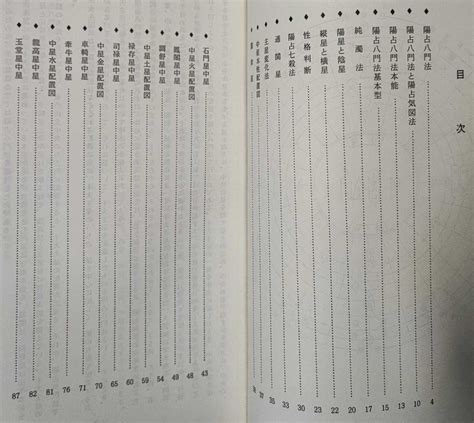 目次
◆ 陽占八門法 4
◆ 陽占八門法と陽占気図法 10
◆ 陽占八門法本能 13
◆ 陽占八門法基本型 15
◆ 純濁法 17
◆ 陽星と陰星 20
◆ 縦星と横星 22
◆ 性格判断 23
◆ 陽占七殺法 30
◆ 通関星 33
◆ 主星変化法 35
◆ 中星木性配置図 37
◆ 石門星中星 43
◆ 中星火星配置図 48
◆ 鳳閣星中星 49
◆ 調舒星中星 54
◆ 中星土星配置図 59
◆ 禄存星中星 60
◆ 司禄星中星 65
◆ 中星金星配置図 70
◆ 車騎星中星 71
◆ 牽牛星中星 76
◆ 中星水星配置図 81
◆ 龍高星中星 82
◆ 玉堂星中星 87